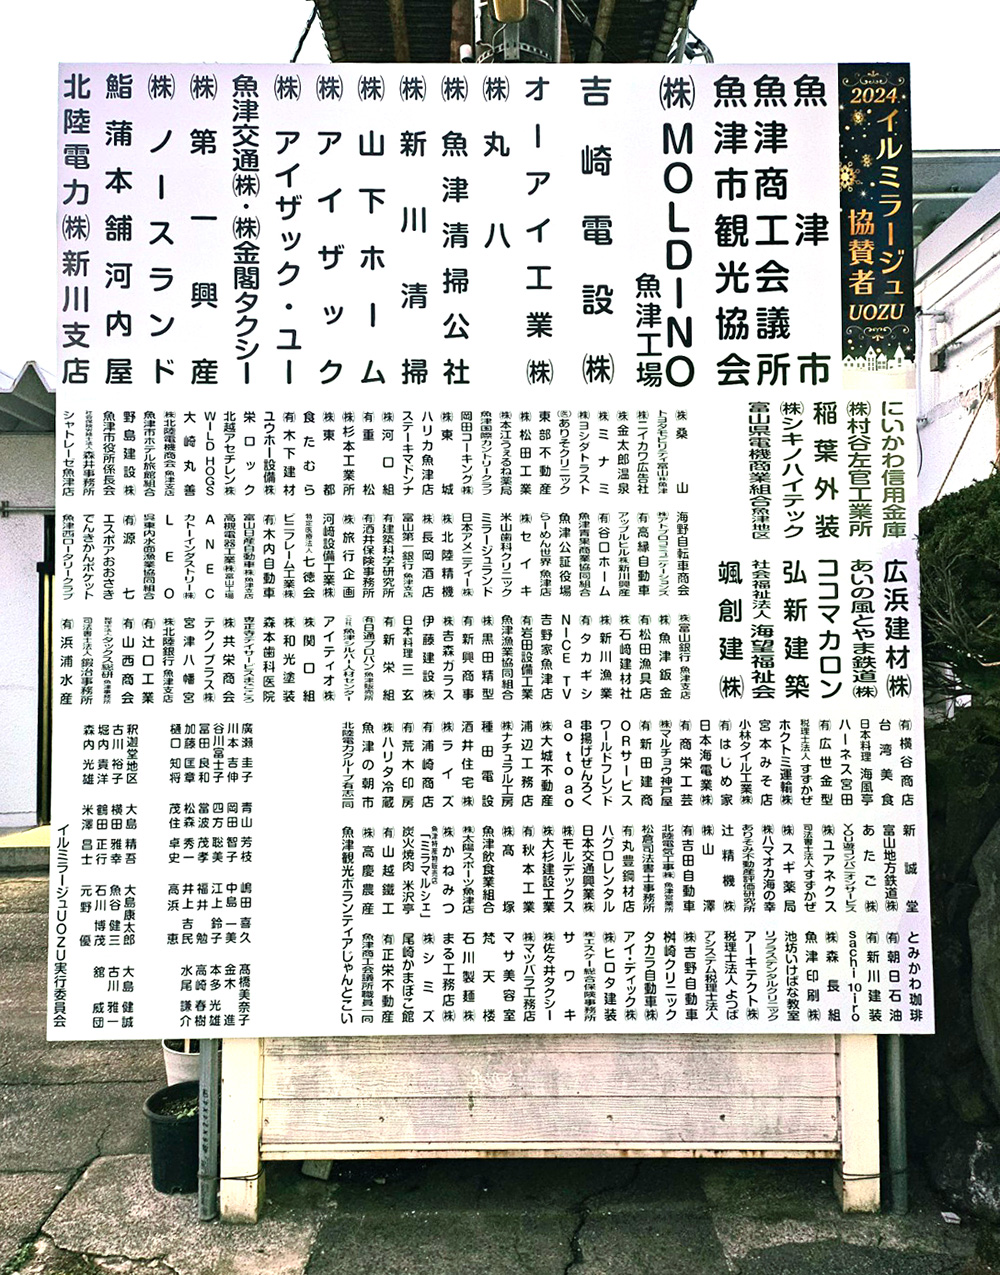 2024
イルミラージュ
UOZU
協賛者
魚津市
魚津商工会議所
魚津市観光協会
㈱MOLDINO
魚津工場
吉崎電設㈱
オーアイ工業㈱
㈱丸八
㈱魚津清掃公社
㈱新川清掃
㈱山下ホーム
㈱アイザック
㈱アイザック・ユー
魚津交通㈱・㈱金閣タクシー
㈱第一興産
㈱ノースランド
鮨蒲本舗河内屋
北陸電力㈱新川支店
にいかわ信用金庫
㈱村谷左官工業所
稲葉外装
㈱シキノハイテック
富山県電機商業組合魚津地区
広浜建材㈱
あいの風とやま鉄道㈱
ココマカロン
弘新建築
社会福祉法人 海望福祉会
颯創建㈱
㈱桑山
トヨタモビリティ富山㈱魚津
㈱ニイカワ広告社
㈱金太郎温泉
㈱ミナミ
㈱ヨシダトラスト
㈲ありそクリニック
東部不動産
㈱松田工業
㈱本江うぇるね薬局
魚津国際カントリークラブ
岡田コーキング㈱
㈱東城
ハリカ魚津店
ステーキマドンナ
㈱河口組
㈲重松
㈱杉本工業所
㈱東都
食たむら
㈲木下建材
ユウホー設備㈱
栄ロック
北越アセチレン㈱
WILD HOGS
大崎丸善
㈱北陸電機商会 魚津支店
魚津市ホテル旅館組合
野島建設㈱
魚津市役所係長会
森井事務所
シャトレーゼ魚津店
海野自転車商会
㈱アトラプロコミュニケーションズ
㈲高縁自動車
アップルヒル㈱新川興産
㈲谷口ホーム
魚津青果商業協同組合
魚津公証役場
らーめん世界 魚津店
㈱セイキ
米山歯科クリニック
ミラージュランド
日本アメニティー㈱
㈱北陸精機
㈱長岡酒店
富山第一銀行魚津支店
㈲建築科学研究所
㈲酒井保険事務所
㈱旅行企画
河崎設備工業㈱
特定医療法人 七徳会
ビニフレーム工業㈱
㈲木内自動車
富山日産自動車㈱魚津支店
高機電器工業㈱富山工場
ANEC
カトーインダストリー㈱
LEO
呉東内水面漁業協同組合
エスポアおおさき
㈲源七
でんきかんポケット
魚津西ロータリークラブ
㈱富山銀行 魚津支店
㈱魚津鈑金
㈲松田漁具店
㈱石﨑建材社
㈱新川漁業
㈲タカギシ
NICE TV
吉野家魚津店
㈲岩田設備工業
魚津漁業協同組合
㈱黒田精型
㈲新興商事
㈱吉森ガラス
伊藤建設㈱
日本料理 三玄
㈲新栄組
㈲日通プロパン 魚津販売所
㈳魚津シルバー人材センター
アイティオ㈱
㈱関口組
㈱和光塗装
森本歯科医院
専正寺デイサービスまごころ
㈱共栄商会
テクノプラス㈱
宮津八幡宮
㈱北陸銀行 魚津支店
㈲辻口工業
㈲山西商会
税理士法人タックス総研 魚津事務所
司法書士法人 鍛治事務所
㈲浜浦水産
㈲横谷商店
台湾美食
日本料理 海風亭
ハーネス宮田
㈲広世金型
税理士法人すずかぜ
ホクトミ運輸㈱
宮本みそ店
小林タイル工業㈱
㈲はじめ家
日本海電業㈱
㈲商栄工芸
㈱マルチョウ神戸屋
㈲新田建商
ORサービス
ワールドフレンド
串揚げぜんろく
aotoao
㈱大城不動産
㈱浦辺工務店
㈱ナチュラル工房
種田電設
酒井住宅㈱
㈱ライズ
㈲浦崎商店
㈲荒木印房
㈱ハリタ冷蔵
魚津の朝市
北陸電力グループ有志二同
新誠堂
富山地方鉄道㈱
あたご㈱
YOU遊コンパニオンサービス
㈱ユアネクス
司法書士法人すずかぜ
㈱スギ薬局
㈱ハマオカ海の幸
ありそみ不動産評価研究所
辻精機㈱
㈱山澤
㈲吉田自動車
北陸電気工事㈱魚津営業所
松倉司法書士事務所
㈲丸豊鋼材店
ハグロレンタル
日本交通興業㈱
㈱モルデックス
㈱大杉建設工業
㈲秋本工業
㈱髙塚
魚津飲食業組合
㈱太陽スポーツ魚津店
㈱かねみつ
魚津特産物販売店
「ミラマルシェ」
炭火焼肉 米沢亭
㈲山越鐵工
㈱高慶農産
魚津観光ボランティアじゃんとこい
とみかわ珈琲
㈲朝日石油
㈲新川建装
sachi-10-iro
㈱森長組
魚津印刷㈱
池坊いけばな教室
リプラスデンタルクリニック
アーキテクト㈱
税理士法人よつば
アシステム税理士法人
㈱吉野自動車
桝崎クリニック
タカラ自動車㈱
アイ・ディック㈱
㈱ヒロタ建装
㈱エスケー総合保険事務所
サワキ
㈱佐々井タクシー
㈱マツバラ工務店
マサ美容室
梵天楼
石川製麺㈱
まる工務店㈱
㈱シミズ
尾崎かまぼこ館
㈲正栄不動産
魚津商工会議所職員一同
廣瀬圭子
川本吉伸
谷川富士子
冨田良和
加藤匡章
樋口知将
青山芳枝
岡田智子
四方聡美
當波茂孝
松森秀一
茂住卓史
嶋田喜久
中島一美
江上鈴子
福井勉
井上吉民
高浜恵
髙橋美奈子
金木進
本多光雄
高崎春樹
水尾謙介
釈迦堂地区
古川裕子
堀内貴洋
森内光雄
大島精吾
横田雅幸
鶴田正行
米澤昌士
大島康太郎
魚谷健三
石川博茂
元野優
大島健誠
古川雅一
舘威団
イルミラージュUOZU実行委員会